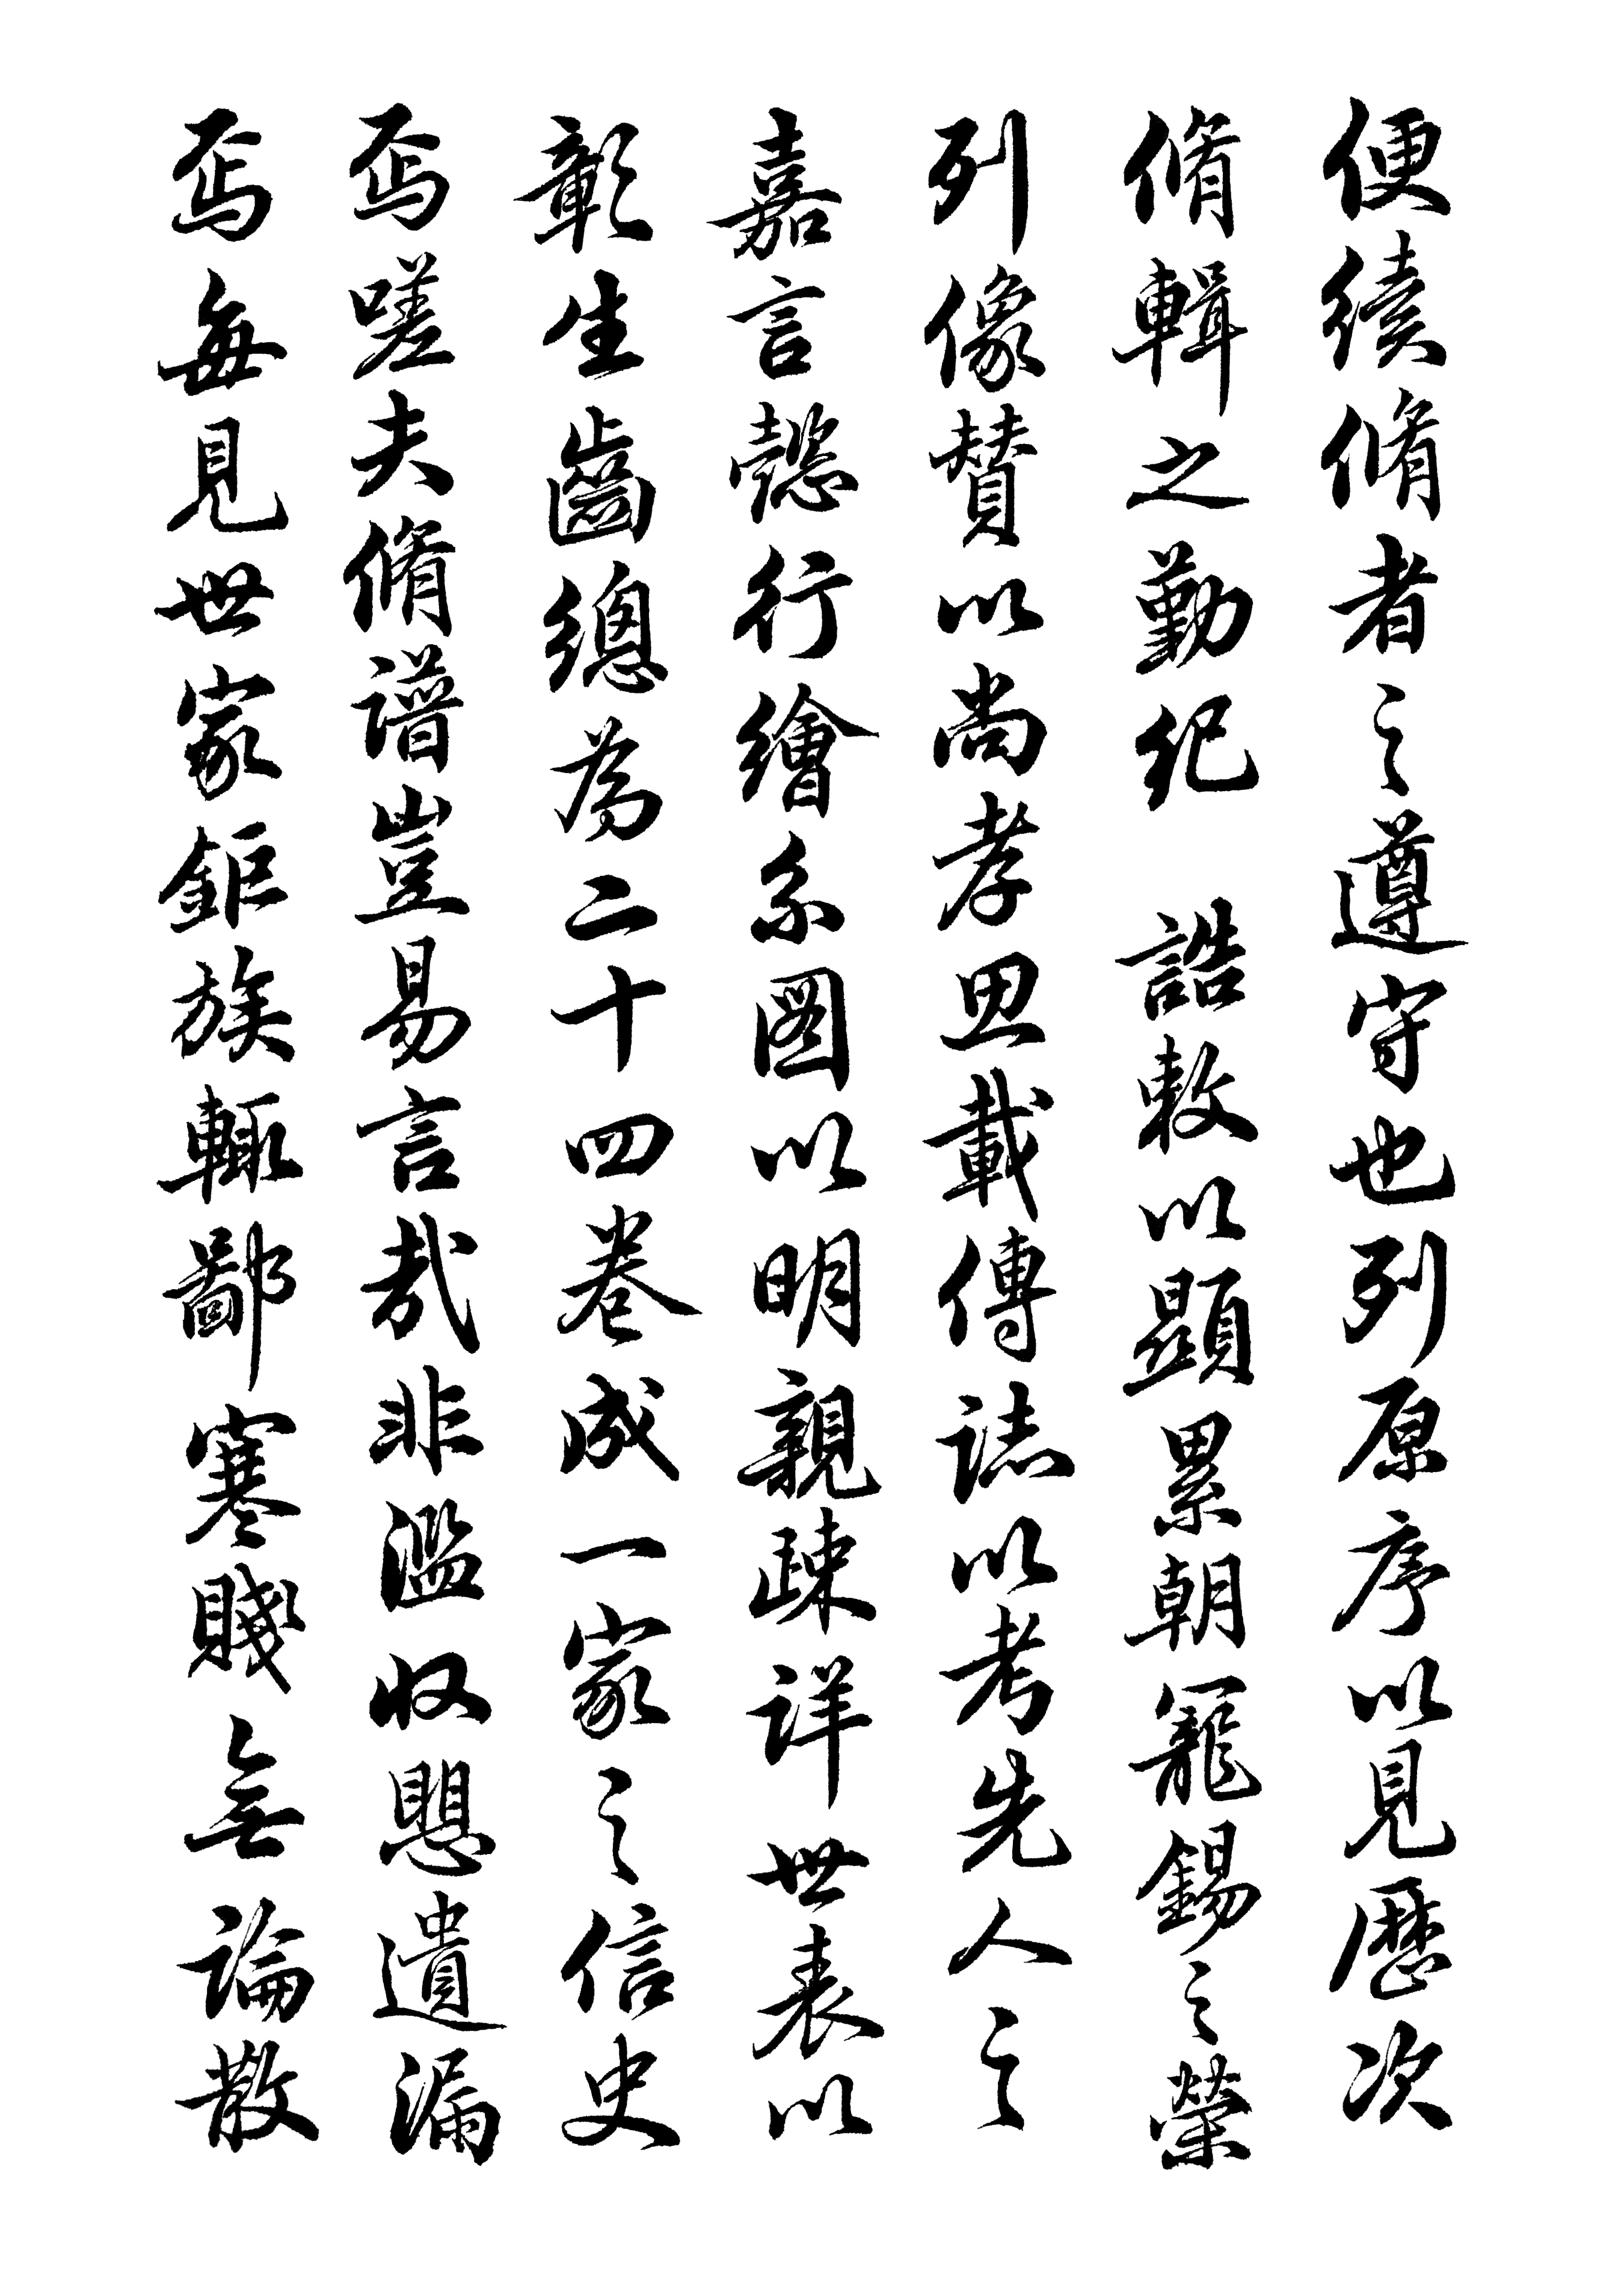 便續脩者之遵守也列原序以見歷次
脩輯之勤紀　誥敕以顯累朝寵錫之榮
列像贊以尚孝思載傳誌以考先人之
嘉言懿行繪系圖以明親疎詳世表以
彰生齒總為二十四卷成一家之信史
焉嗟夫脩譜豈易言哉非濫收即遺漏
焉每見世家鉅族輒鄙寒賤無論散